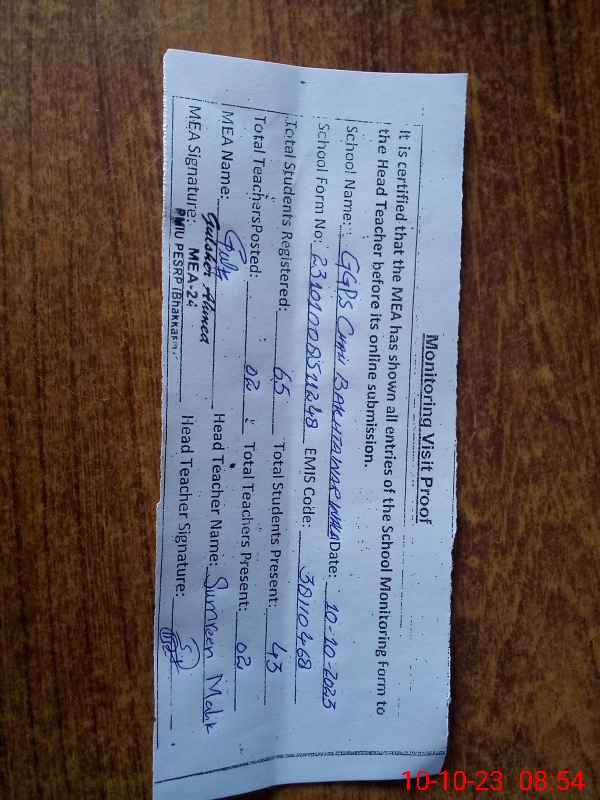 Monitoring Visit Proof
It is certified that the MEA has shown all entries of the School Monitoring Form to
the Head Teacher before its online submission.
School Name: GGPS BAKHTAWAR WALA Date: 10-10-2023
School Form No: EMIS Code: 38110468
Total Students Registered: 65 Total Students Present: 43
Total Teachers Posted: 02 Total Teachers Present: 02
MEA Name: Head Teacher Name: Sumreen Malik
Gulsher Ahmed
MEA Signature: MEA-24 Head Teacher Signature:
PMIU PESRP (Bhakkar)
10-10-23 08:54